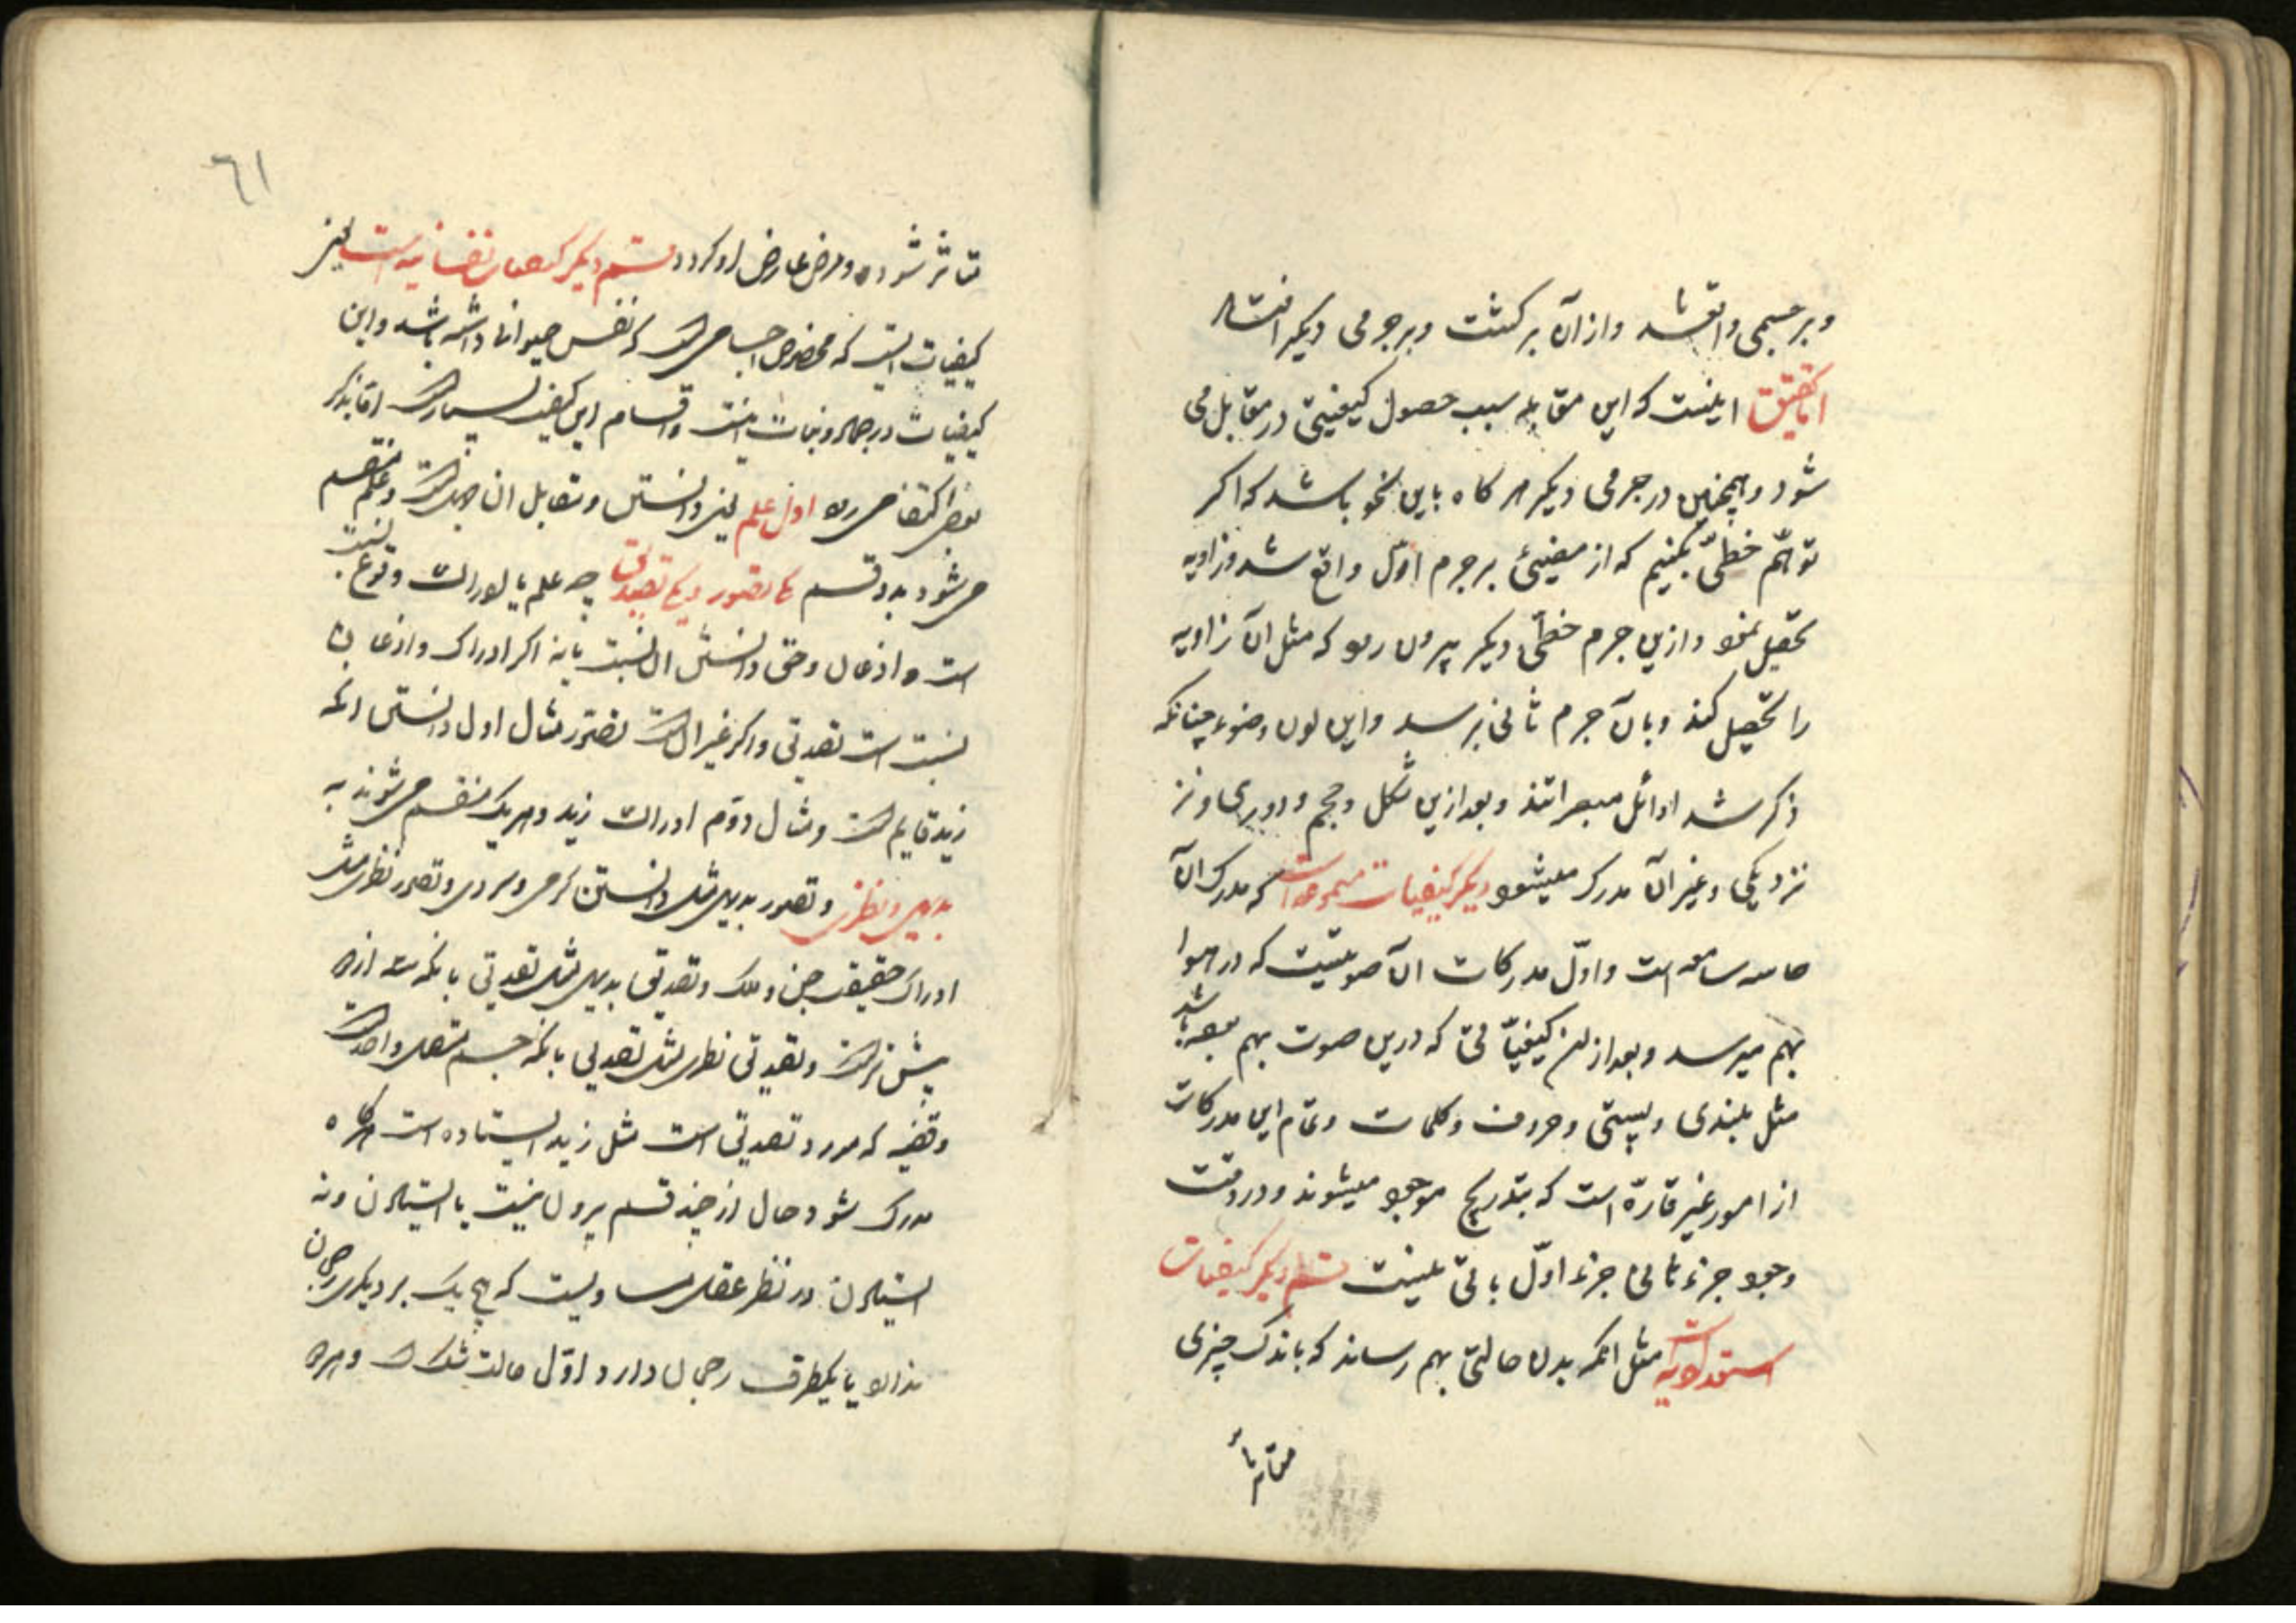 و بر جسمی واقع شد و از آن برگشت و بر جرمی دیگر افتاد
اما تحقیق اینست که این مقابله سبب حصول کیفیتی در مقابل می
شود و همچنین در جرمی دیگر هر گاه باین نحو باشد که اگر
توهّم خطّی بکنیم که از مضیئی بر جرم اوّل واقع شد و زاویه
تحصیل نمود و ازین جرم خطّی دیگر بیرون رود که مثل آن زاویه
را تحصیل کند و بآن جرم ثانی برسد و این لون و ضوء چنانکه
ذکر شد اوائل مبصراتند و بعد ازین شکل و حجم و دوری و نز
نزدیکی و غیر آن مدرک میشود دیگر کیفیات مسموعه است که مدرک آن
حاسه سامعه است و اوّل مدرکات آن صوتیست که در هوا
بهم میرسد و بعد از آن کیفیّاتی که درین صوت بهم رسیده باشد
مثل بلندی و پستی و حروف و کلمات و تمام این مدرکات
از امور غیر قارّه است که بتدریج موجود میشوند و در وقت
وجود جزء ثانی جزء اوّل باقی نیست قسم دیگر کیفیات
استعدادیه است مثل آنکه بدن حالتی بهم رساند که باندک چیزی
متأثر
٦١
متاثر شود و مرض عارض او گردد قسم دیگر کیفیات نفسانیه است یعنی
کیفیات است که مخصوص اجسامی است که نفس حیوانی داشته باشد و این
کیفیات در جماد و نبات نیست و اقسام این کیفیت بسیار است اما بذکر
بعضی اکتفا می رود اول علم یعنی دانستن و مقابل آن جهل است و علم منقسم
می شود به دو قسم یکی تصور و یکی تصدیق چه علم یا ادراک وقوع نسبت
است و اذعان و حق دانستن آن نسبت یا نه اگر ادراک و اذعان
نسبت است تصدیق و اگر غیر آن است تصوّر مثال اول دانستن آنکه
زید قایم است و مثال دوّم ادراک زید و هر یک منقسم می شوند به
بدیهی و نظری و تصور بدیهی مثل دانستن گرمی و سردی و تصور نظری مثل
ادراک حقیقت جن و ملک و تصدیق بدیهی مثل تصدیق بانکه سه از دو
بیشتر است و تصدیق نظری مثل تصدیق بانکه جسم متصل واحد است
و قضیه که مورد تصدیق است مثل زید ایستاده است هر گاه
مدرک شود حال از چند قسم بیرون نیست یا ایستادن و نه
ایستادن در نظر عقل مساویست که هیچ یک بر دیگری رجحان
ندارد یا یکطرف رجحان دارد اوّل حالت شک است و هر گاه